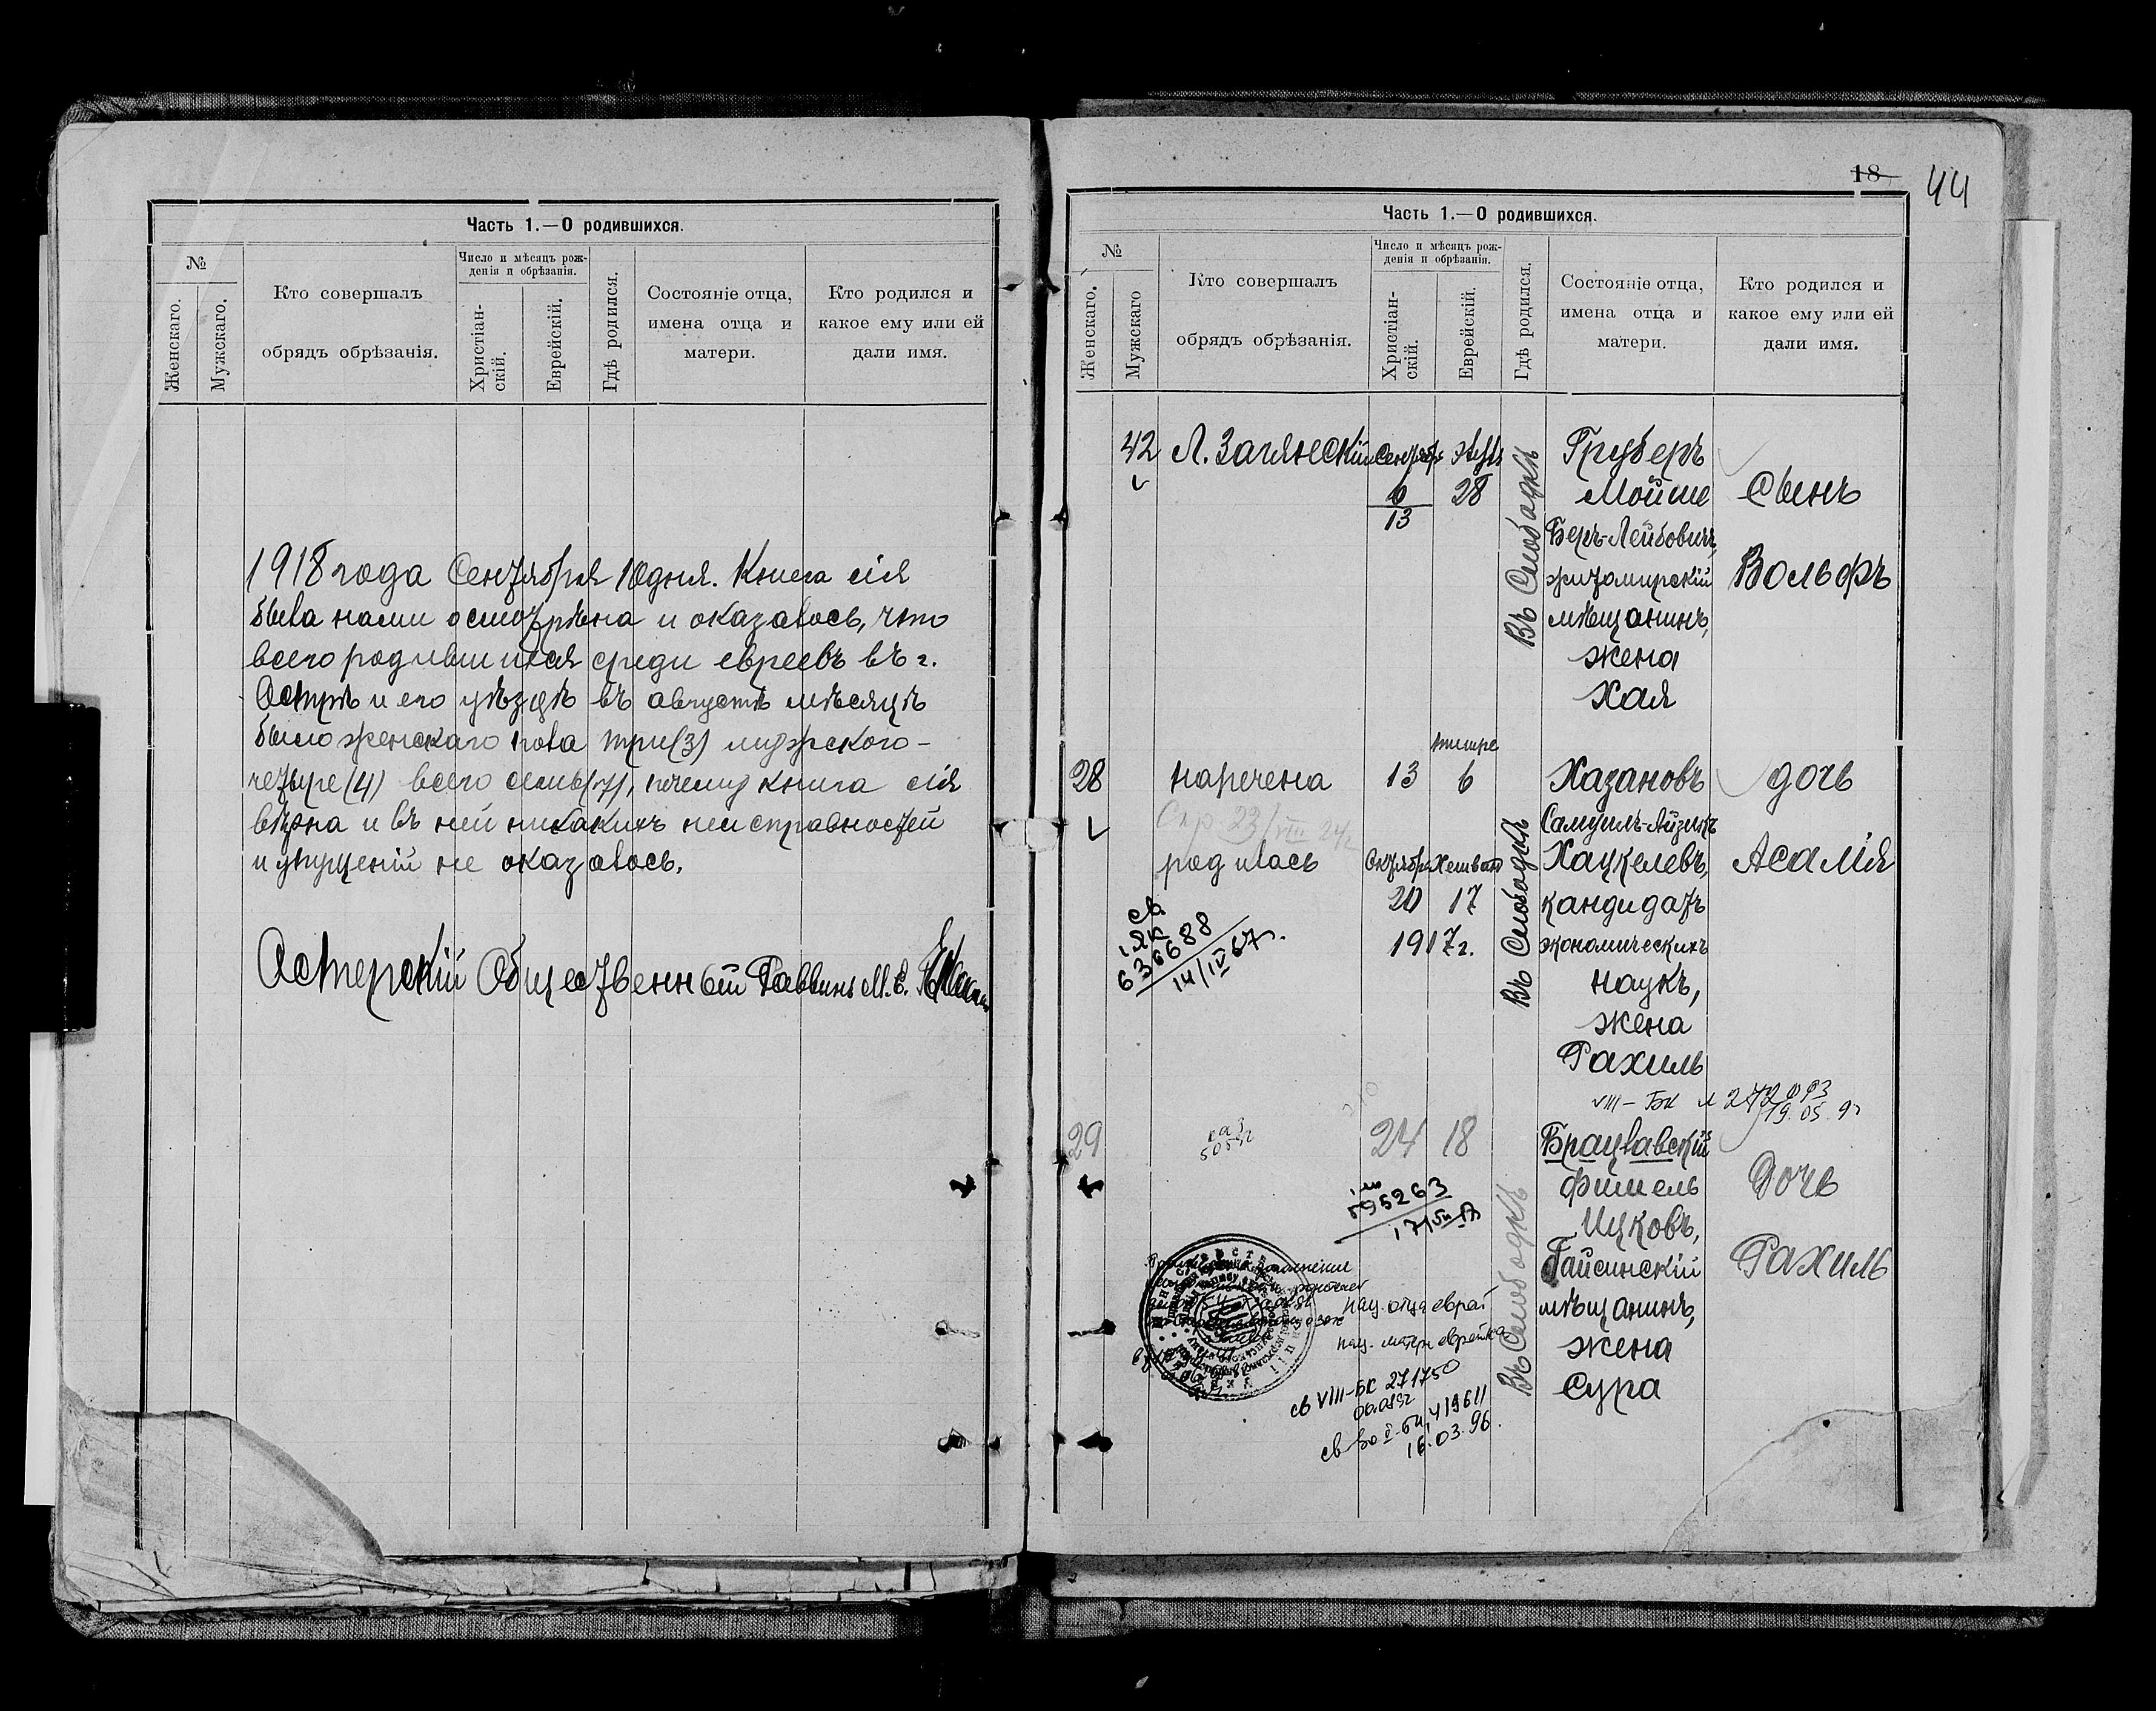 Часть 1.—О родившихся.
№
Женскаго.
Мужскаго.
Кто совершалъ
обрядъ обрѣзанія.
Число и мѣсяцъ рож-
денія и обрѣзанія.
Христіан-
скій.
Еврейскій.
Гдѣ родился.
Состояніе отца,
имена отца и
матери.
Кто родился и
какое ему или ей
дали имя.
1918 года Сентября 10 дня. Книга сія
была нами осмотрѣна и оказалось, что
всего родившихся среди евреевъ въ г.
Острѣ и его уѣздѣ въ августѣ мѣсяцѣ
было женскаго пола три (3) мужского -
четыре (4) всего семь (7), почему книга сія
вѣрна и въ ней никакихъ неисправностей
и упущеній не оказалось.
Остерскій Общественный Раввинъ М. Е.
18
44
Часть 1.—О родившихся.
№
Женскаго.
Мужскаго
Кто совершалъ
обрядъ обрѣзанія.
Число и мѣсяцъ рож-
денія и обрѣзанія.
Христіан-
скій.
Еврейскій.
Гдѣ родился.
Состояніе отца,
имена отца и
матери.
Кто родился и
какое ему или ей
дали имя.
42
Л. Заглнескій
Сентябр
6
13
Элулъ
28
Въ Слободкѣ
Груберъ
Мойше
Беръ-Лейбовичъ,
житомирскій
мѣщанинъ,
жена
Хая
Сынъ
Вольфъ
28
наречена
13
тишре
6
Спр 23/VIII 24г
родилась
Октября
20
Хешван
17
1917 г.
св
ІЯК
636688
14/IV 67г.
Въ Слободкѣ
Хазановъ
Самуилъ-Айзикъ
Хацкелевъ,
кандидатъ
экономическихъ
наукъ,
жена
Рахиль
дочь
Асалія
VIII - БК
19.05.9
29
24
18
595263
Въ Слободкѣ
Брацлавскій
Фишель
Ицковъ,
Гайсинскій
мѣщанинъ,
жена
Сура
Дочь
Рахиль
нац. отца еврей
нац. матери еврейка
св VIII-БК 271750
06.0892
419611
16.03.96.